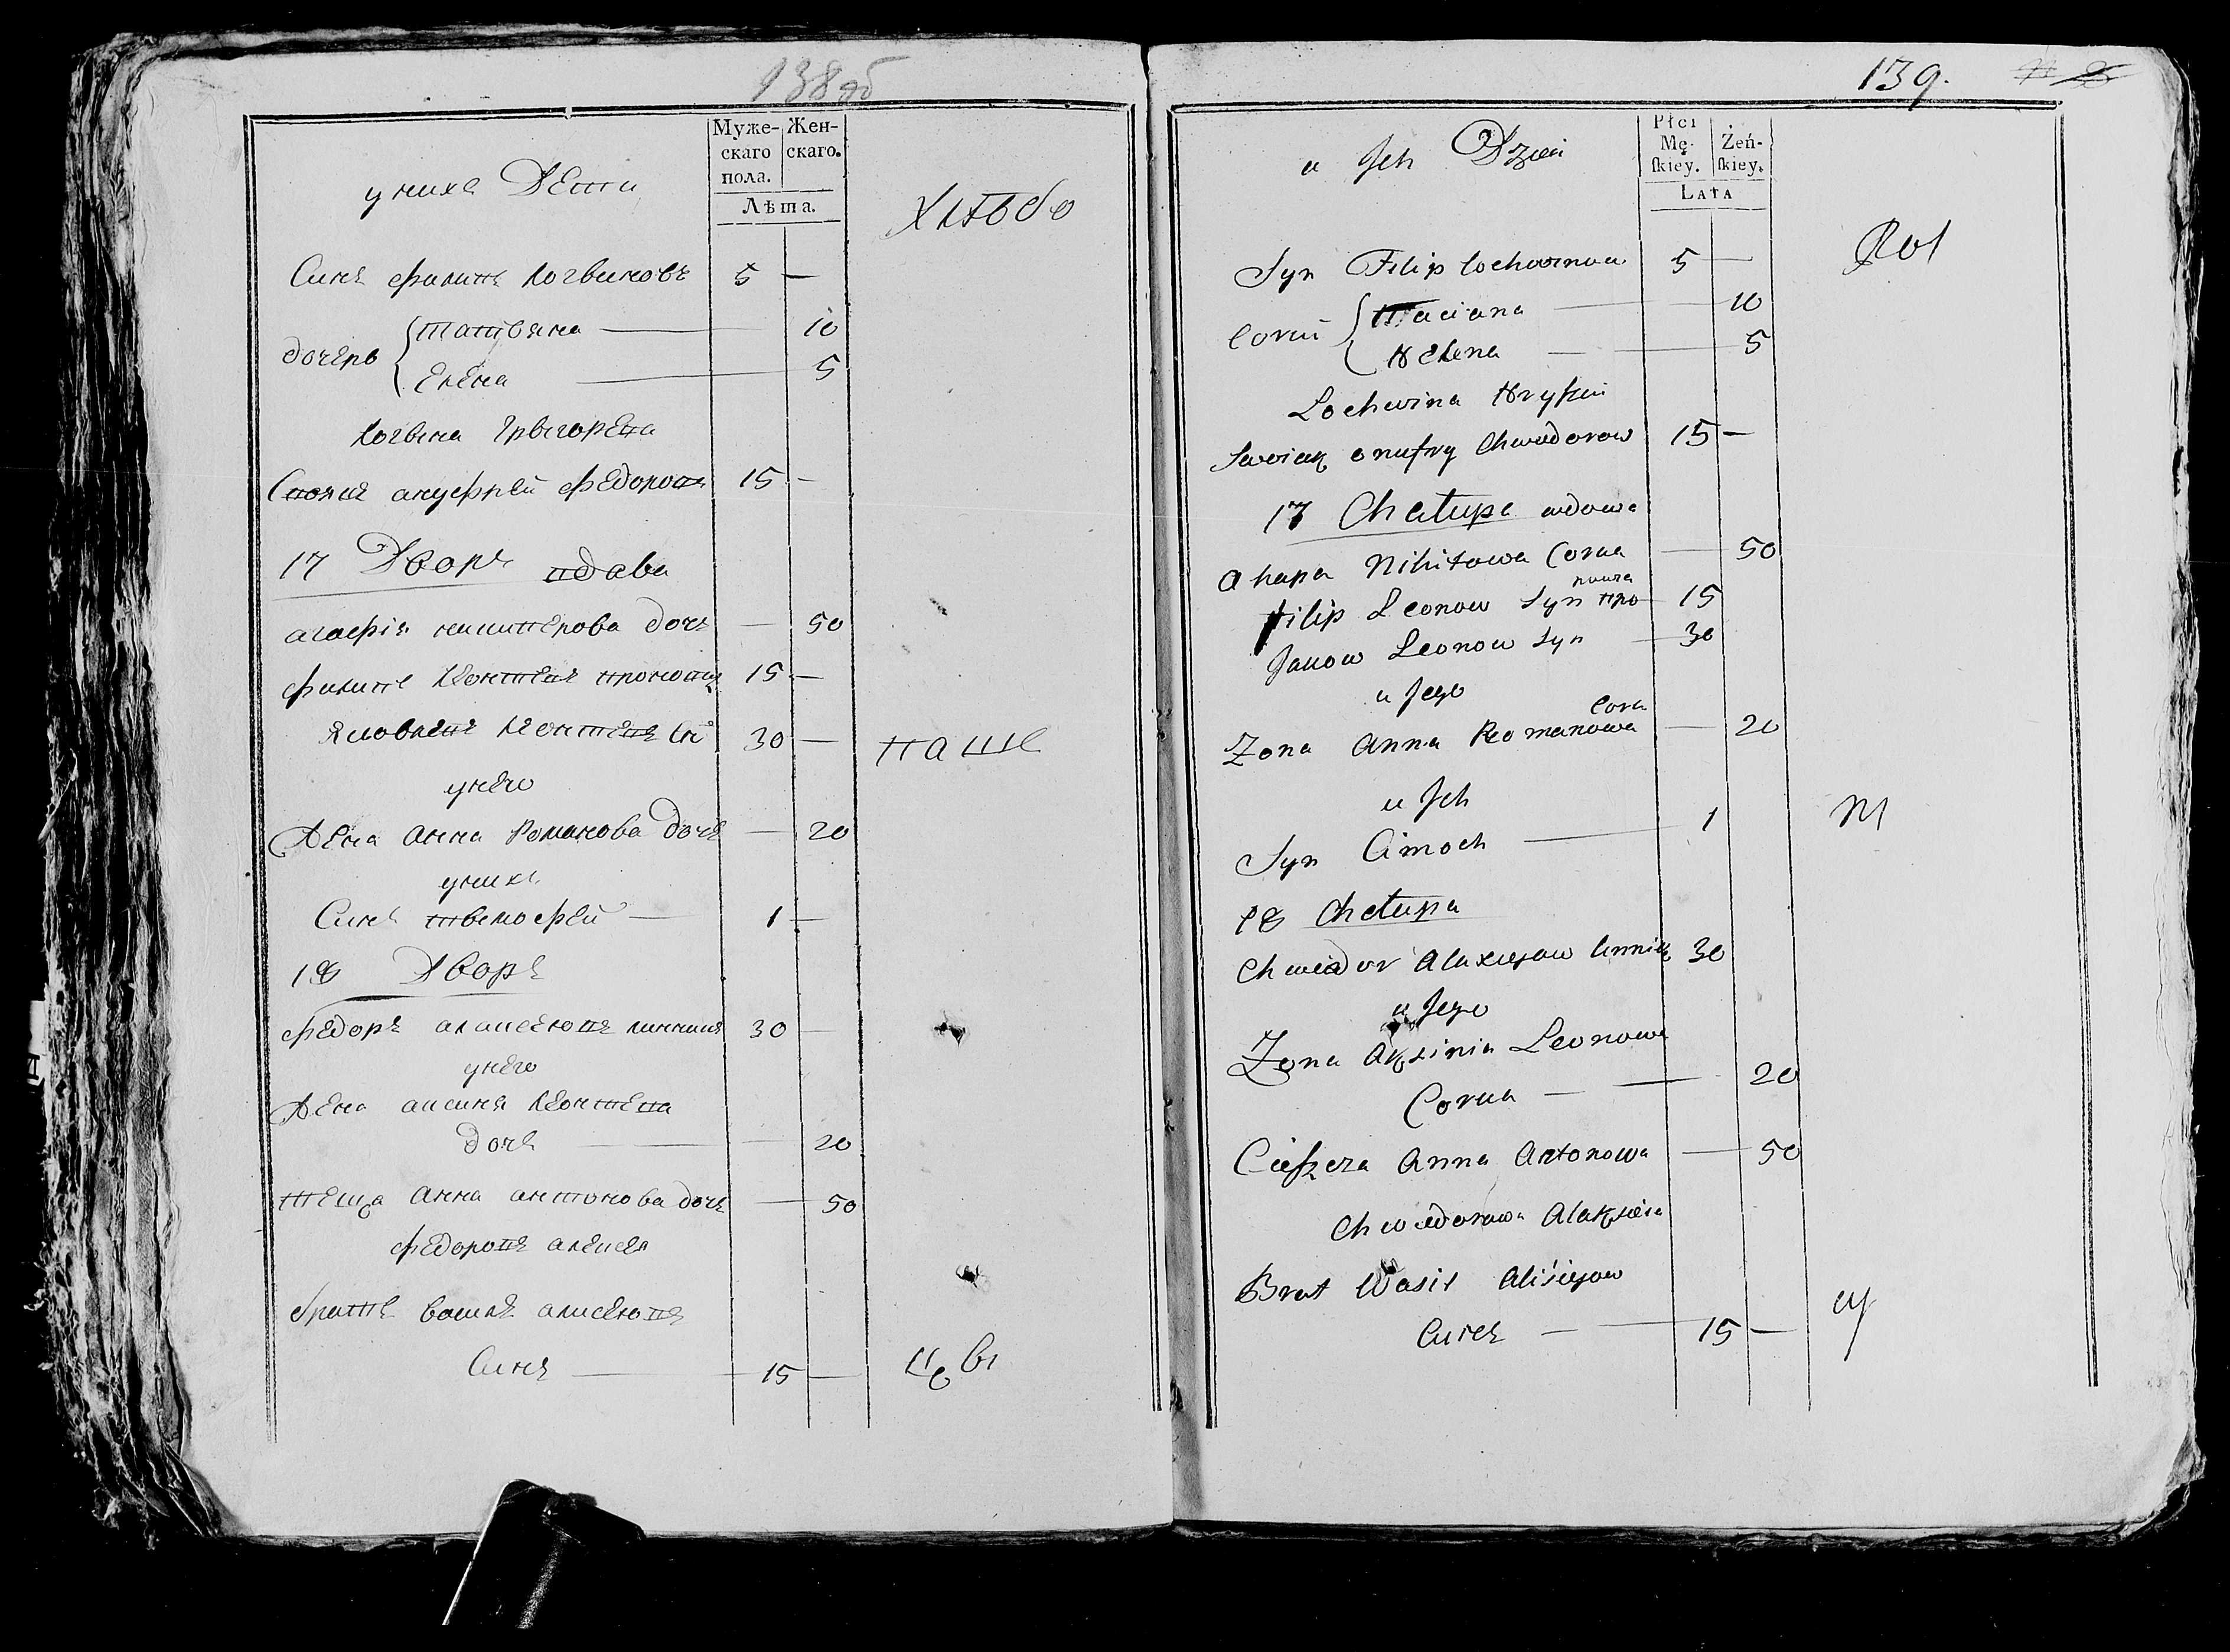 138 об
Муже-
скаго
пола.
Жен-
скаго.
Лѣта.
у нихъ Дети
Хлѣбо
Синъ филипъ логвиновъ 5 —
дочерь { татьяна — 10
елена — 5
логвена григорева
свояк ануфрей федоров 15 —
17 Дворъ вдава
агафія никитерова дочъ — 50
филипъ леонтевъ 15 —
леонтевъ 30 —
паш
у него
Жена анна романова дочъ — 20
у нихъ
Синъ тимофей — 1 —
18 Дворъ
федоръ алаисеювъ 30 —
у него
Жена аксиня леонтева
дочъ — 20
теща анна антонова дочъ — 50
федоровъ алексея
братъ василъ алисеювъ
синъ — 15 —
139.
Płci
Mę-
ſkiey.
Żeń-
ſkiey.
Lata
u Jch Dzieci
Rol
Syn Filip 5 —
Corki { Taciana — 10
Helena — 5
Lochwina Hryszki
Swoiak onufry Chwedorow 15 —
17 Chatupa wdowa
Ahapa Nikitowa Corka — 50
Filip Leonow Syn 15
Leonow Syn — 30
u Jego
Cork
Zona Anna Romanowa — 20
u Jch
Syn Cimoch — 1
18 Chatupa
Chwiedor Alaxiejow 30
u Jego
Zona Axsinia Leonowa
Corka — 20
Cieszcza Anna Antonowa — 50
Chwiedorowa
Brat Wasil Alisiejow
синъ — 15 —